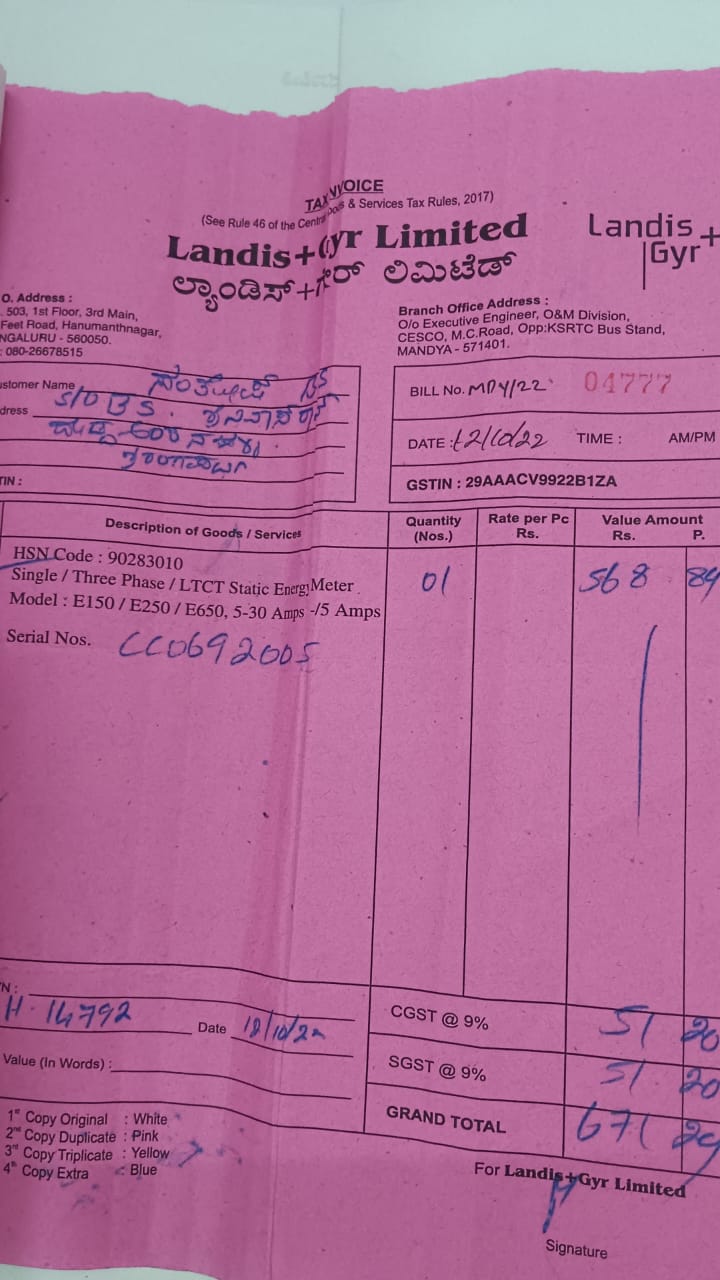 TAX INVOICE
(See Rule 46 of the Central Goods & Services Tax Rules, 2017)
Landis+Gyr Limited
ಲ್ಯಾಂಡಿಸ್+ಗೇರ್ ಲಿಮಿಟೆಡ್
Landis+
Gyr
O. Address :
503, 1st Floor, 3rd Main,
Feet Road, Hanumanthnagar,
NGALURU - 560050.
: 080-26678515
Branch Office Address :
O/o Executive Engineer, O&M Division,
CESCO, M.C.Road, Opp:KSRTC Bus Stand,
MANDYA - 571401.
ustomer Name ಸಂತೋಷ್
dress S/O B S.
TIN :
BILL No. MDY/22 04777
DATE : 12/10/22 TIME : AM/PM
GSTIN : 29AAACV9922B1ZA
Description of Goods / Services Quantity (Nos.) Rate per Pc Rs. Value Amount Rs. P.
HSN Code : 90283010
Single / Three Phase / LTCT Static Energy Meter 01 568 84
Model : E150 / E250 / E650, 5-30 Amps -/5 Amps
Serial Nos. CC0692005
N :
H-14792 Date 12/10/22
Value (In Words) :
CGST @ 9% 51 20
SGST @ 9% 51 20
GRAND TOTAL 671 24
1st Copy Original : White
2nd Copy Duplicate : Pink
3rd Copy Triplicate : Yellow
4th Copy Extra : Blue
For Landis+Gyr Limited
Signature